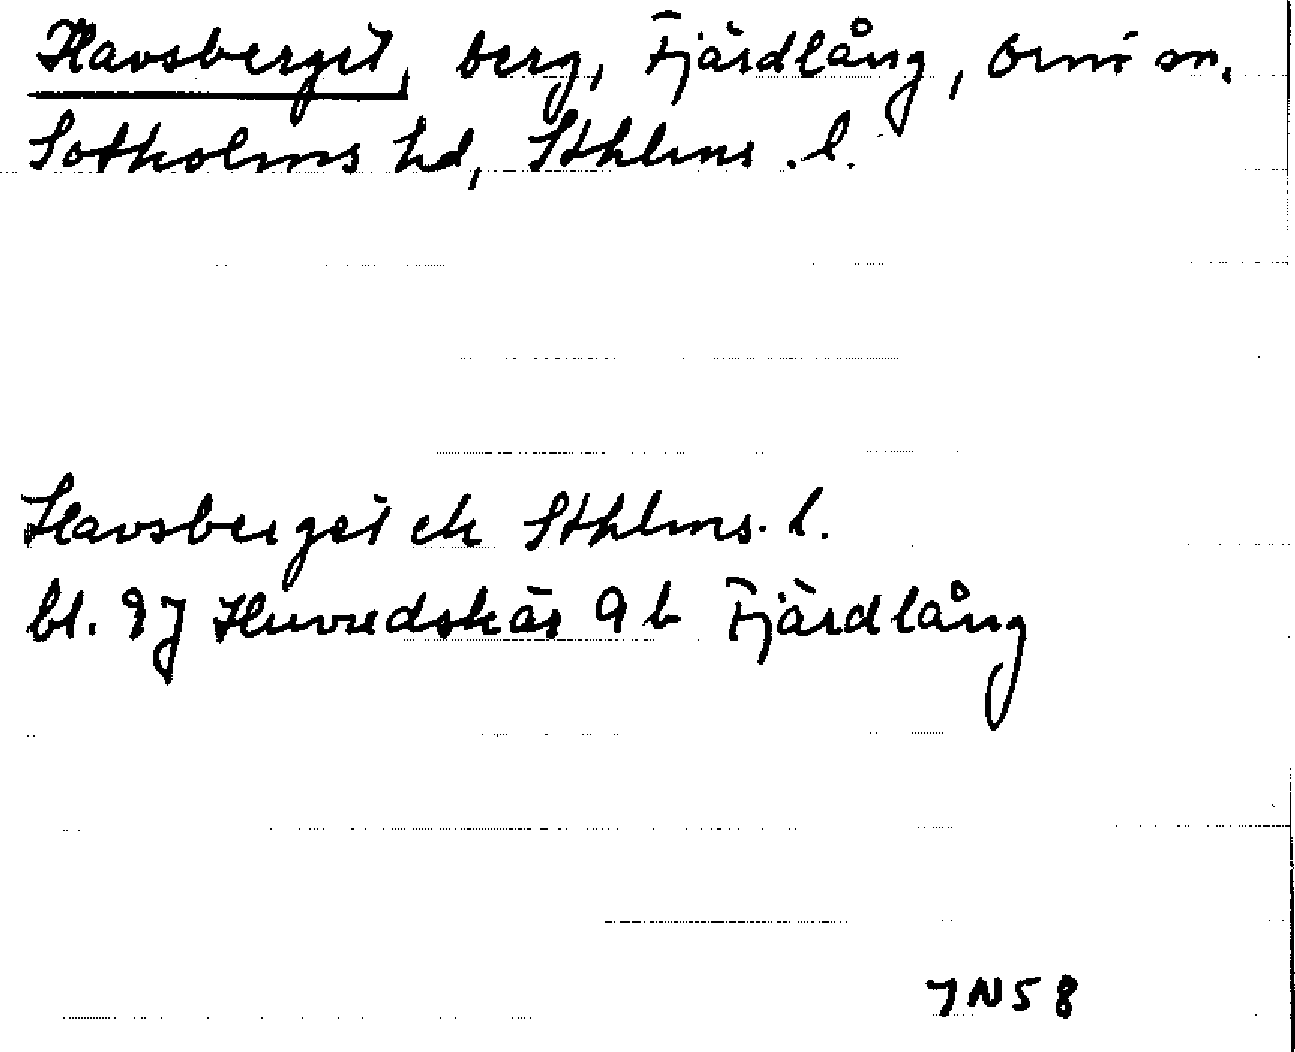 Havsberget, berg, Fjärdlång, Ornö sn.
Sotholms hd, Sthlms. l.
Havsberget ek Sthlms. l.
bl. 9J Huvudskär 9 b Fjärdlång
JN58